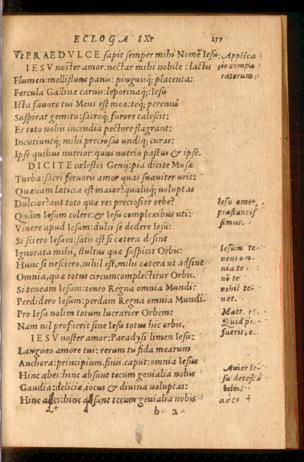 ECLOGA IX.
Vt PRAEDVLCE sapit semper mihi Nomẽ Iesu,
IESV noster amor: nectar mihi nobile: lactis
Flumen: mellistuus panis: pinguisq́; placenta:
Fercula Gallinæ carnis: leporinaq́;: Iesu
Ista suaue tui Mens est mea: teq́; perenni
Suspirat gemitu: sacroq́; furore calescit:
Et toto nobis incendia pectore flagrant:
Incutiuntq́; mihi preciosus undiq; curas:
Ipse quibus nutrior: quus nutrio pastus & ipse.
DICITE cælestes Genij: pia dicite Musæ
Turba: sacri feruoris amor quas suauiter urit:
Quænam lætitia est maior? qualisq́; uoluptas
Dulcior? aut toto quæ res preciosior orbe?
Quàm Iesum colere: & Iesu complexibus uti:
Viuere apud Iesum: dulci se dedere Iesu:
Si sciero Iesum: satis est si cætera desint
Ignorata mihi, stultus quæ suspicit Orbis:
Hunc si nesciero, nihil est, mihi cætera ut adsint
Omnia, quæ totus circumcomplectitur Orbis.
Si teneam Iesum: teneo Regna omnia Mundi:
Perdidero Iesum: perdam Regna omnia Mundi.
Pro Iesu nolim totum lucrarier Orbem:
Nam nil profuerit sine Iesu totus hic orbis,
IESV noster amor: Paradysi limen Iesu:
Langueo amore tui: rerum tu fida mearum
Anchora: principium: finis, caput: omnia Iesus
Hinc abes: hinc absunt tecum genialia nobis
Gaudia: deliciæ, iocus & diuina uoluptas:
Hinc ades: hinc adsunt tecum genialia nobis
b 2
Applica
tio compa
ratorum,
Iesu amor,
præstantis
simus.
Iesum te-
nens om-
nia te-
nõ te
nihil te-
net.
Matt. 15.
Quid pr-
fuerit, &.
Amor Ie-
su